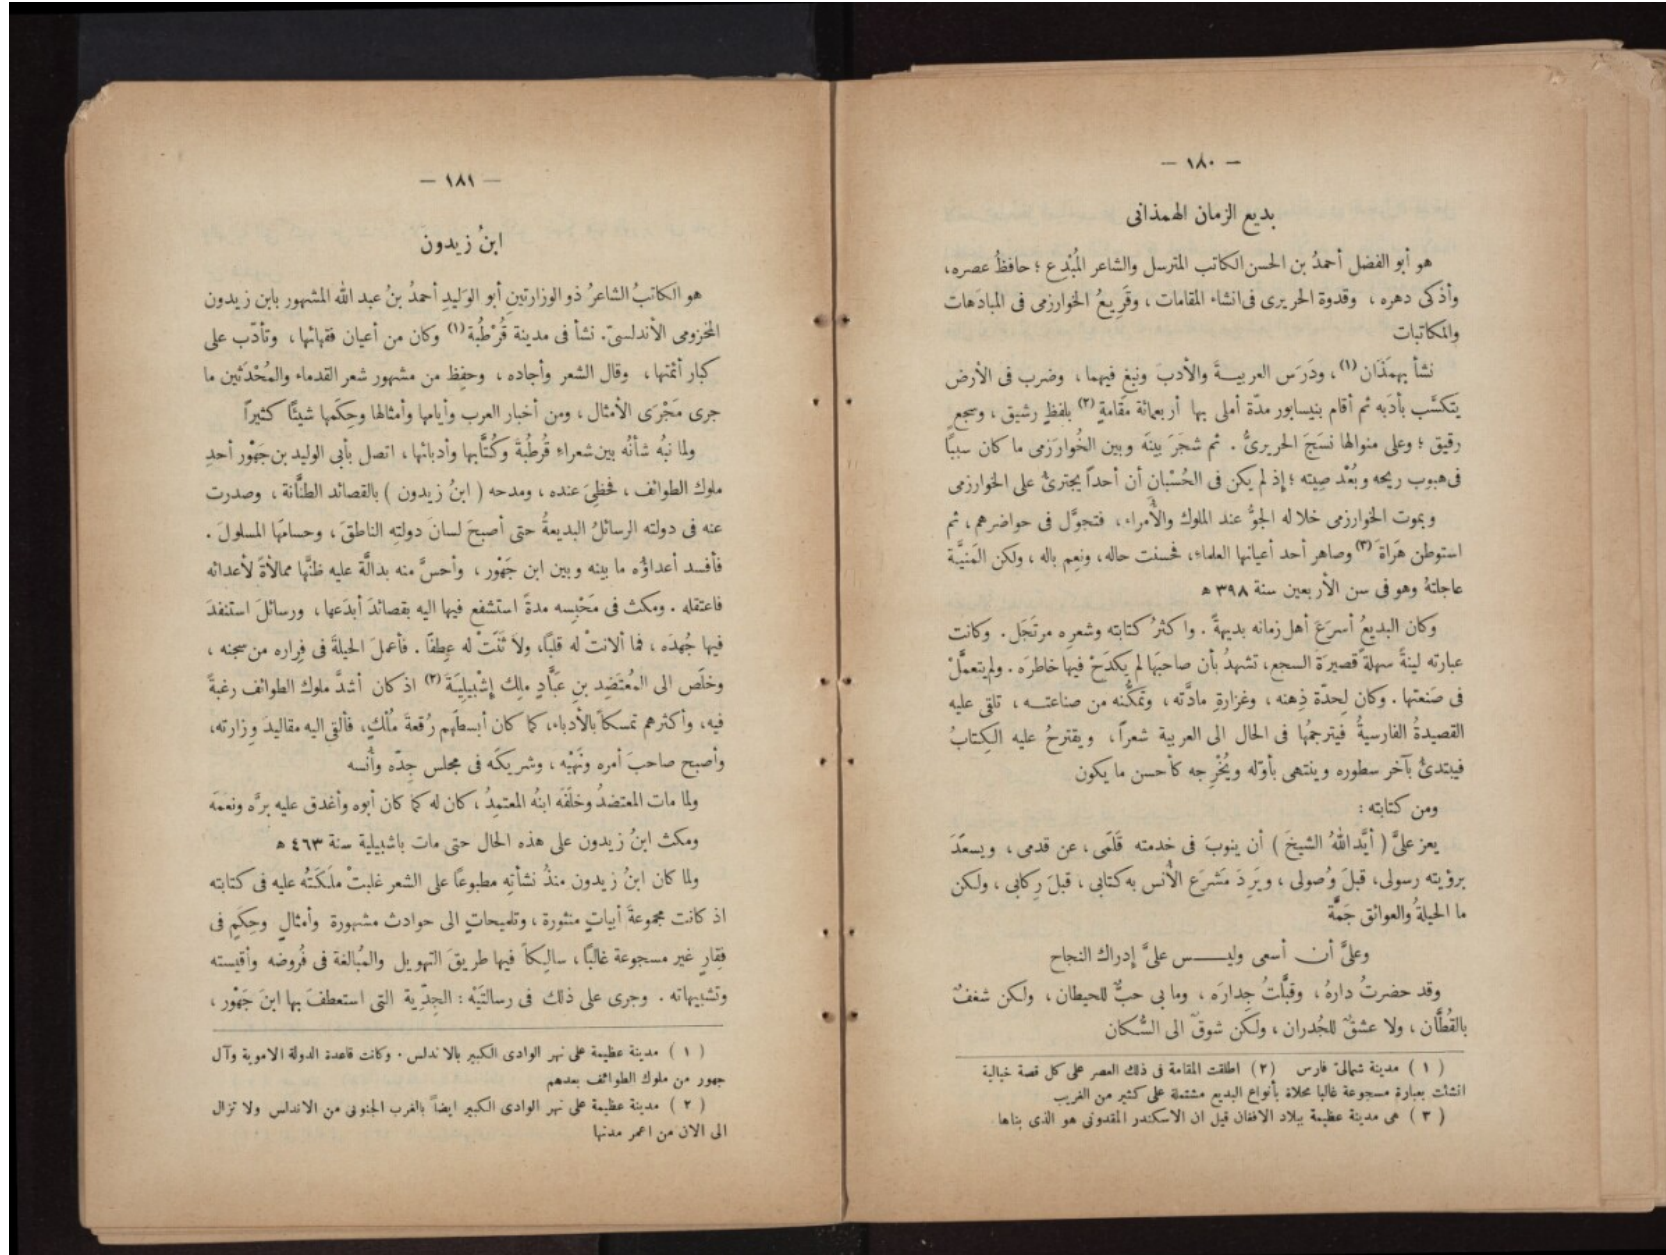 — ١٨٠ —
بديع الزمان الهمذانى
هو أبو الفضل أحمدُ بن الحسن الكاتب المترسل والشاعر المُبْدِع ؛ حافظُ عصره،
وأذكى دهره ، وقدوة الحريرى فى انشاء المقامات ، وقَرِيعُ الخوارزمى فى المبادَهات
والمكاتبات
نشأ بهمَذَان (١) ، ودَرَس العربيـــةَ والأدبَ ونبغ فيهما ، وضرب فى الأرض
يتكسَّب بأدَبه ثم أقام بنيسابور مدّة أملى بها أربعمائة مَقامةٍ (٢) بلفظٍ رشيق ، وسجعٍ
رقيق ؛ وعلى منوالها نسَجَ الحريرىُّ . ثم شجَرَ بينَه وبين الخُوارَزمى ما كان سببًا
فى هبوب ريحه وبُعْد صِيته ؛ إذ لم يكن فى الحُسْبان أن أحداً يجترئُ على الخوارزمى
وبموت الخوارزمى خلا له الجوُّ عند الملوك والأُمراء، فتجوَّل فى حواضرهم ، ثم
استوطن هَراةَ (٣) وصاهر أحد أعيانها العلماء، فحسنت حاله، ونعِم باله ، ولكن المَنيَّة
عاجلتهُ وهو فى سن الأربعين سنة ٣٩٨ ه
وكان البديعُ أسرَعَ أهل زمانه بديهةً . واكثرُ كتابته وشعرِه مرتَجَل . وكانت
عبارته لينةً سهلةً قصيرَة السجع، تشهدُ بأن صاحبَها لم يكدَحْ فيها خاطرَه . ولم يتعمَّلْ
فى صَنعتها . وكان لِحدّة ذِهنه ، وغزارةِ مادَّته ، وتمكُّنه من صناعتـــه ، تلقى عليه
القصيدةُ الفارسيةُ فيترجمُها فى الحال الى العربية شعراً، ويقترحُ عليه الكِتابُ
فيبتدئُ بآخر سطوره وينتهى بأوّله ويُخْرِجه كأحسن ما يكون
ومن كتابته :
يعز علىَّ ( أيَّد اللهُ الشيخَ ) أن ينوبَ فى خدمته قَلَمى ، عن قدمى ، ويسعَدَ
برؤيته رسولى، قبلَ وُصولى ، ويَرِدَ مَشرَع الأُنس به كتابى ، قبلَ رِكابى ، ولكن
ما الحيلةُ والعوائق جَمَّة
وعلىَّ أن أسعى وليـــس علىَّ إدراك النجاح
وقد حضرتُ دارهُ ، وقبَّلتُ جِدارَه ، وما بى حبٌّ للحيطان ، ولكن شغفٌ
بالقُطَّان ، ولا عشقٌ للجُدران ، ولكن شوقٌ الى السُّكان
( ١ ) مدينة شمالىّ فارس ( ٢ ) اطلقت المقامة فى ذلك العصر على كل قصة خيالية
انشئت بعبارة مسجوعة غالبا محلاة بأنواع البديع مشتملة على كثير من الغريب
( ٣ ) هى مدينة عظيمة ببلاد الافغان قيل ان الاسكندر المقدونى هو الذى بناها
— ١٨١ —
ابنُ زيدون
هو الكاتبُ الشاعرُ ذو الوزارتينِ أبو الوَليدِ أحمدُ بنُ عبد الله المشهور بابن زيدون
المخزومى الأندلسىّ. نشأ فى مدينة قُرْطُبة (١) وكان من أعيان فقهائها ، وتأدّب على
كبار أئمتها ، وقال الشعر وأجاده ، وحفِظ من مشهور شعر القدماء والمُحْدَثين ما
جرى مَجْرَى الأمثال ، ومن أخبار العرب وأيامها وأمثالها وحِكَمها شيئًا كثيراً
ولما نبُه شأنُه بين شعراء قُرطُبةَ وكُتَّابها وأدبائها ، اتصل بأبى الوليد بن جَهْور أحدِ
ملوك الطوائف ، فحظِىَ عنده ، ومدحه ( ابنُ زيدون ) بالقصائد الطنَّانة ، وصدرت
عنه فى دولته الرسائلُ البديعةُ حتى أصبحَ لسانَ دولتِه الناطقَ ، وحسامَها المسلولَ .
فأفسد أعداؤُه ما بينه وبين ابن جَهْور ، وأحسَّ منه بدالَّة عليه ظنَّها ممالأةً لأعدائه
فاعتقله . ومكث فى مَحْبِسه مدةً استشفع فيها اليه بقصائدَ أبدَعها ، ورسائلَ استنفدَ
فيها جُهدَه ، فما ألانتْ له قلبًا، ولا ثَنَتْ له عِطفًا . فأعملَ الحيلةَ فى فِراره من سجنه ،
وخلَص الى المُعتَضِد بنِ عَبَّادٍ ملِك إشْبِيلِيَةَ (٢) اذ كان أشدَّ ملوك الطوائف رغبةً
فيه، وأكثرهم تمسكاً بالأدباء، كما كان أبسطَهم رُقعةَ مُلْكٍ، فألقى اليه مقاليدَ وِزارته،
وأصبح صاحبَ أمره ونَهْيْه ، وشريكَه فى مجلس جِدّه وأُنسه
ولما مات المعتضدُ وخلَفَه ابنُه المعتمدُ ، كان له كما كان أبوه وأغدق عليه برَّه ونعمَه
ومكث ابنُ زيدون على هذه الحال حتى مات باشبيلية سنة ٤٦٣ ه
ولما كان ابنُ زيدون منذُ نشأتِه مطبوعًا على الشعر غلبتْ ملَكَتُه عليه فى كتابته
اذ كانت مجموعةَ أبياتٍ منثورة ، وتلميحاتٍ الى حوادث مشهورة وأمثالٍ وحِكَمٍ فى
فِقارٍ غير مسجوعة غالبًا ، سالِكاً فيها طريقَ التهويل والمُبالغة فى فُروضه وأقيسته
وتشبيهاته . وجرى على ذلك فى رسالتَيْه : الجِدِّية التى استعطفَ بها ابنَ جَهْور ،
( ١ ) مدينة عظيمة على نهر الوادى الكبير بالاندلس . وكانت قاعدة الدولة الاموية وآل
جهور من ملوك الطوائف بعدهم
( ٢ ) مدينة عظيمة على نهر الوادى الكبير ايضاً بالغرب الجنوبى من الاندلس ولا تزال
الى الان من اعمر مدنها